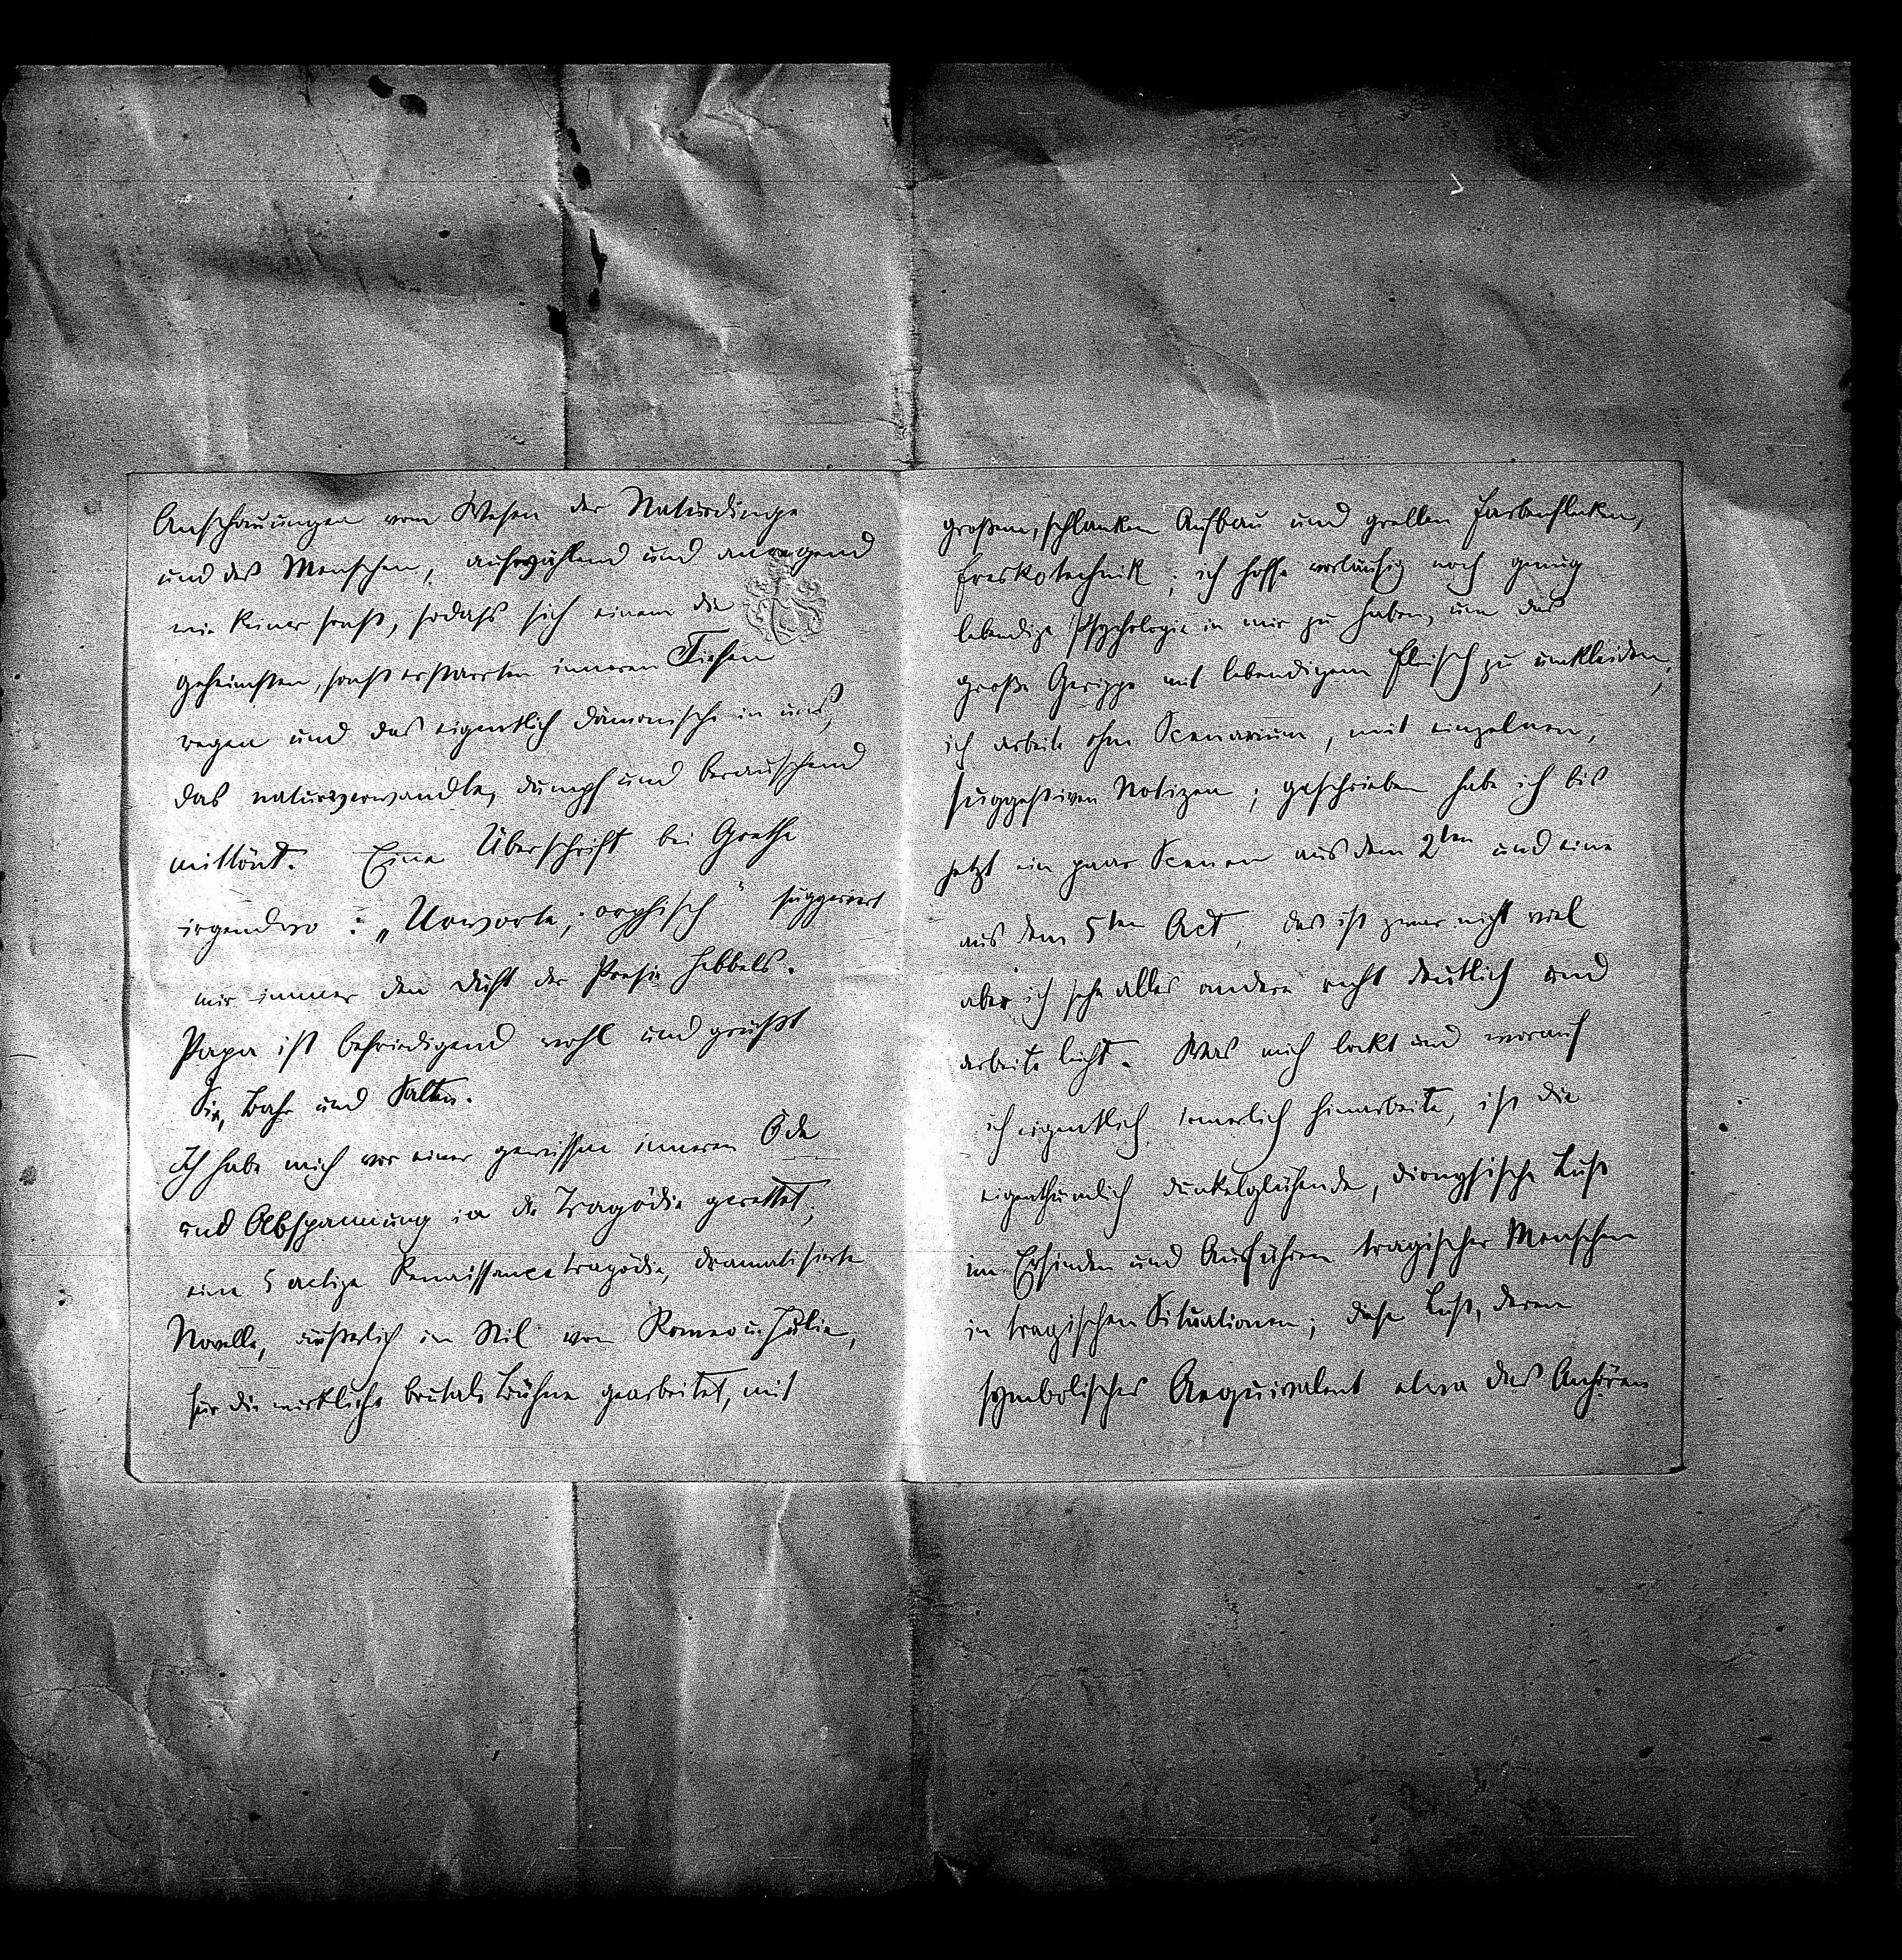 Anschauungen vom Wesen der Naturdinge
und des Menschen, aufwühlend und anregend
wie keiner sonst, sodass sich einem die
geheimsten, sonst erstarrten inneren Tiefen
regen und das eigentlich dämonische in uns,
das naturverwandte, dumpf und berauschend
mittönt. Eine Überschrift bei Goethe
irgendwo: „Urworte, orphisch" suggeriert
mir immer den Duft der Poesie Hebbels.
Papa ist befriedigend wohl und grüßt
Sie, Bahr und Salten.
Ich habe mich vor einer gewissen inneren Öde
und Abspannung in die Tragödie gerettet;
eine 5 actige Renaissancetragödie, dramatisirte
Novelle, äußerlich im Stil von Romeo u. Julie,
für die wirkliche brutale Bühne gearbeitet, mit
großem, schlanken Aufbau und grellen Farbenflecken,
Freskotechnik; ich hoffe vorläufig noch genug
lebendige Psychologie in mir zu haben, um das
große Gerippe mit lebendigem Fleisch zu umkleiden;
ich arbeite ohne Scenarium, mit einzelnen,
suggestiven Notizen; geschrieben habe ich bis
jetzt ein paar Scenen aus dem 2ten und eine
aus dem 5ten Act; das ist zwar nicht viel
aber ich sehe alles andere recht deutlich und
arbeite leicht. Was mich lockt und worauf
ich eigentlich innerlich hinarbeite, ist die
eigenthümlich dunkelglühende, dionysische Lust
im Erfinden und Ausführen tragischer Menschen
in tragischen Situationen; diese Lust, deren
symbolisches Aequivalent etwa das Anhören